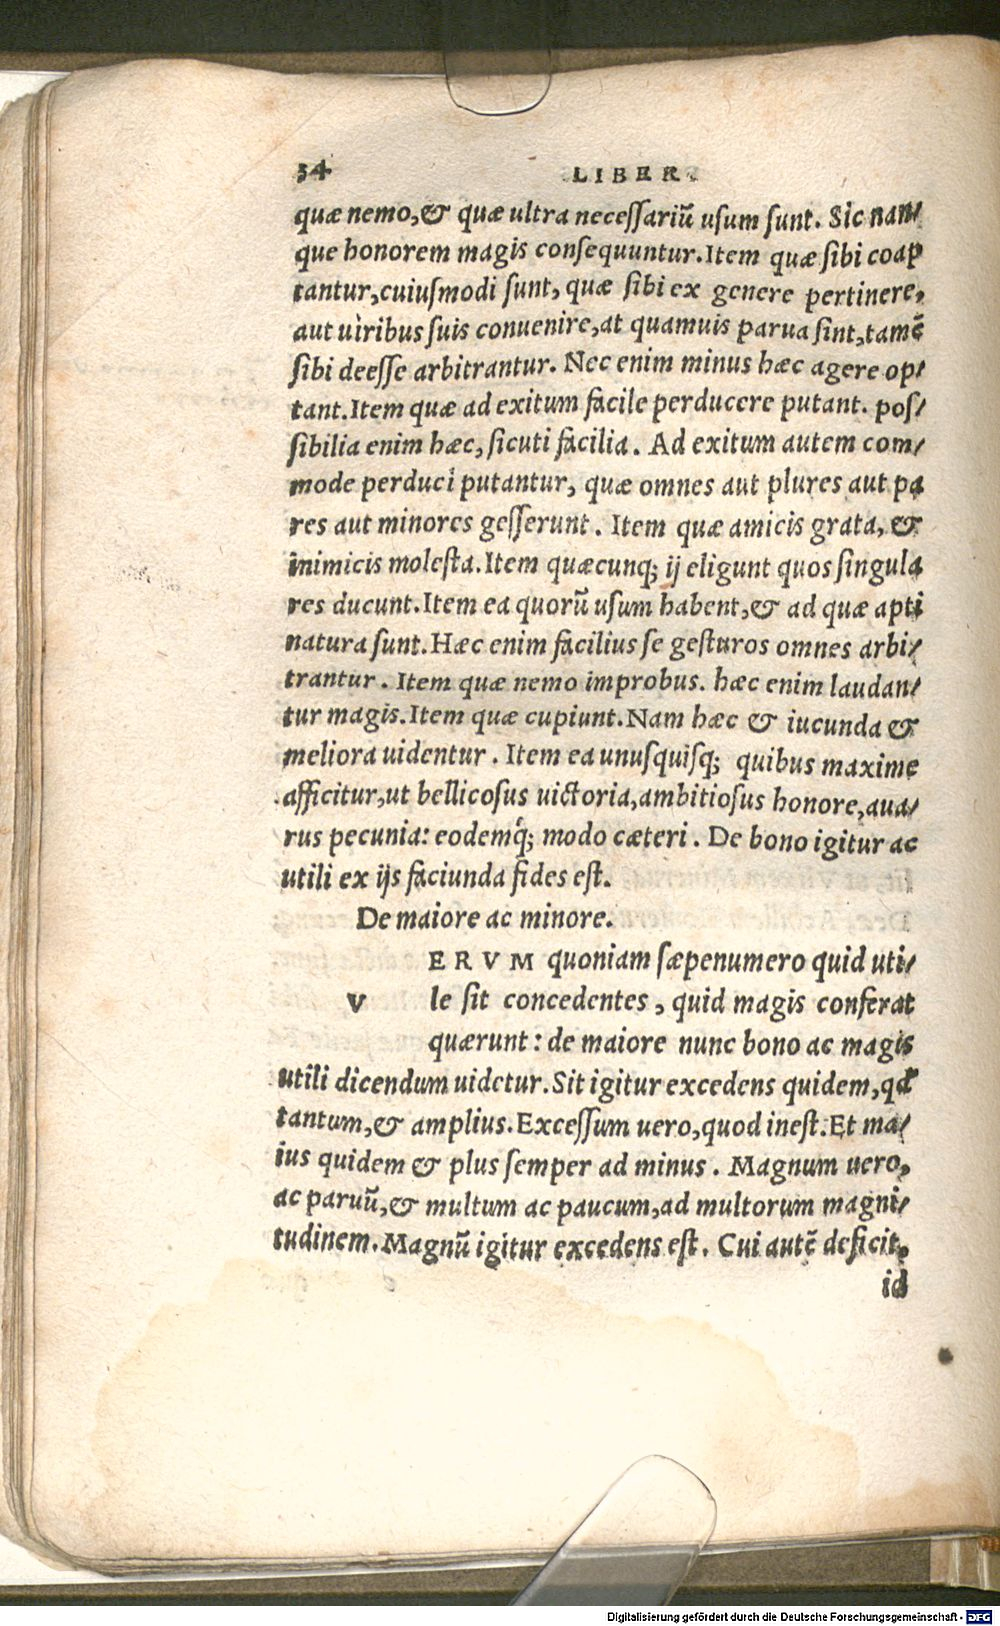 34 LIBER
quæ nemo,& quæ ultra necessariũ usum sunt. Sic nan/
que honorem magis consequuntur. Item quæ sibi coap
tantur,cuiusmodi sunt, quæ sibi ex genere pertinere,
aut uiribus suis conuenire,at quamuis parua sint,tamẽ
sibi deesse arbitrantur. Nec enim minus hæc agere op/
tant. Item quæ ad exitum facile perducere putant. pos/
sibilia enim hæc, sicuti facilia. Ad exitum autem com/
mode perduci putantur, quæ omnes aut plures aut pa
res aut minores gesserunt. Item quæ amicis grata, &
inimicis molesta. Item quæcunq; ij eligunt quos singula
res ducunt. Item ea quorũ usum habent,& ad quæ apti
natura sunt. Hæc enim facilius se gesturos omnes arbi/
trantur. Item quæ nemo improbus. hæc enim laudan/
tur magis. Item quæ cupiunt. Nam hæc & iucunda &
meliora uidentur. Item ea unusquisq; quibus maxime
afficitur,ut bellicosus uictoria,ambitiosus honore,aua/
rus pecunia: eodemq́; modo cæteri. De bono igitur ac
utili ex ijs faciunda fides est.
De maiore ac minore.
VERVM quoniam sæpenumero quid uti/
le sit concedentes, quid magis conferat
quærunt: de maiore nunc bono ac magis
utili dicendum uidetur. Sit igitur excedens quidem,qđ
tantum,& amplius. Excessum uero,quod inest. Et ma/
ius quidem & plus semper ad minus. Magnum uero,
ac paruũ,& multum ac paucum,ad multorum magni/
tudinem. Magnũ igitur excedens est. Cui autẽ deficit,
id
Digitalisierung gefördert durch die Deutsche Forschungsgemeinschaft - DFG